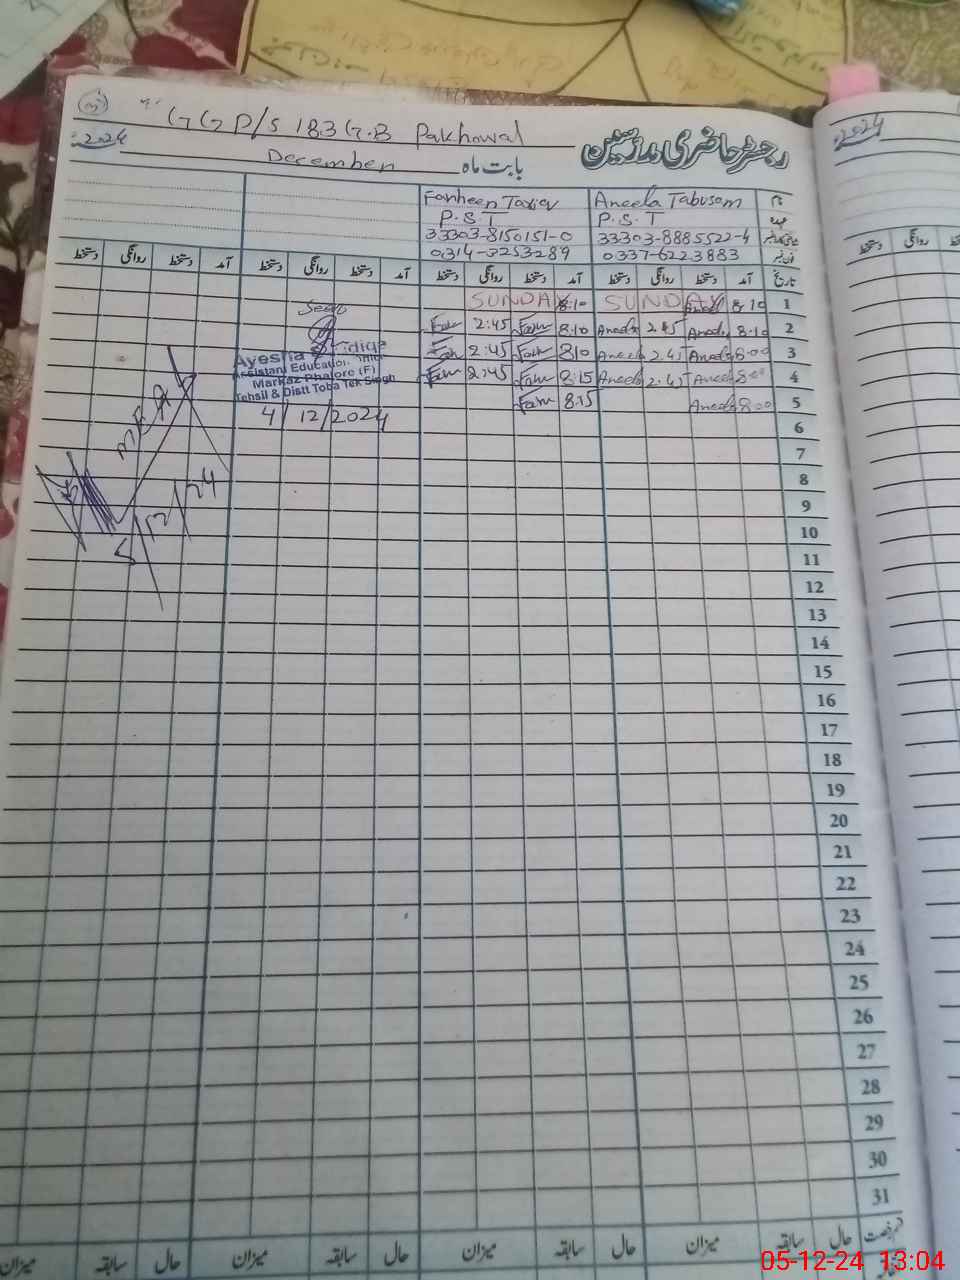 GGP/S 183 G.B Pakhowal
رجسٹر حاضری مدرسین
2024
December بابت ماہ
Farheen Tariq Aneela Tabusam نام
P.S.T P.S.T عہدہ
33303-8150151-0 33303-8885522-4
0314-0253289 0337-6223883
دستخط روانگی دستخط آمد دستخط روانگی دستخط آمد دستخط روانگی دستخط آمد دستخط روانگی دستخط آمد تاریخ
SUNDAY 8:10 SUNDAY 8:10 1
Seen
2:45 8:10 Aneela 2:45 Aneela 8:10 2
2:45 8:10 Aneela 2:45 Aneela 8:00 3
2:45 8:15 Aneela 2:45 Aneela 8:00 4
8:15 Aneela 8:00 5
Ayesha
Assistant Education
Markaz Bhalore (F)
Tehsil & Distt Toba Tek Singh
4/12/2024
MEA
5/12/24
6
7
8
9
10
11
12
13
14
15
16
17
18
19
20
21
22
23
24
25
26
27
28
29
30
31
میزان سابقہ حال میزان سابقہ حال میزان سابقہ حال میزان سابقہ حال قسم رخصت
2024
دستخط روانگی
05-12-24 13:04